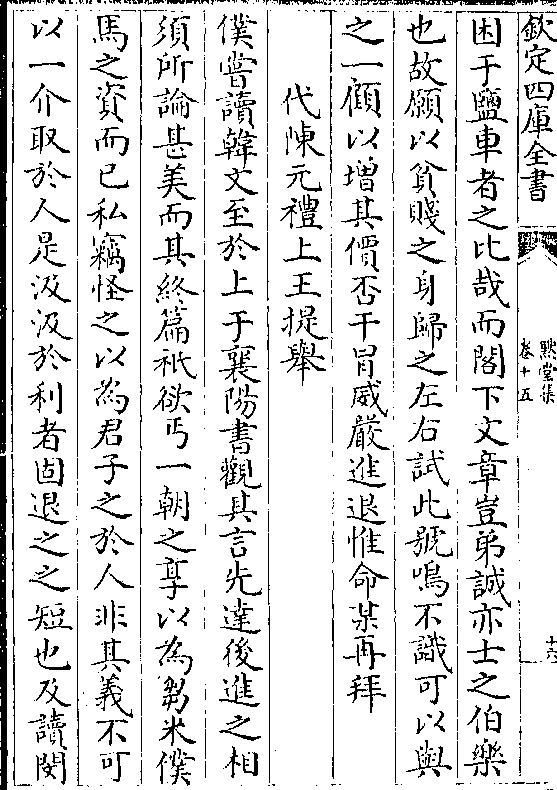 欽定四庫全書
默堂集
卷十五
十六
困于鹽車者之比哉而閣下文章豈弟誠亦士之伯樂
也故願以貧賤之身歸之左右試此號鳴不識可以與
之一顧以增其價否干冒威嚴進退惟命某再拜
代陳元禮上王提舉
僕嘗讀韓文至於上于襄陽書觀其言先達後進之相
須所論甚美而其終篇秪欲丐一朝之享以為芻米僕
馬之資而已私竊怪之以為君子之於人非其義不可
以一介取於人是汲汲於利者固退之之短也及讀閔